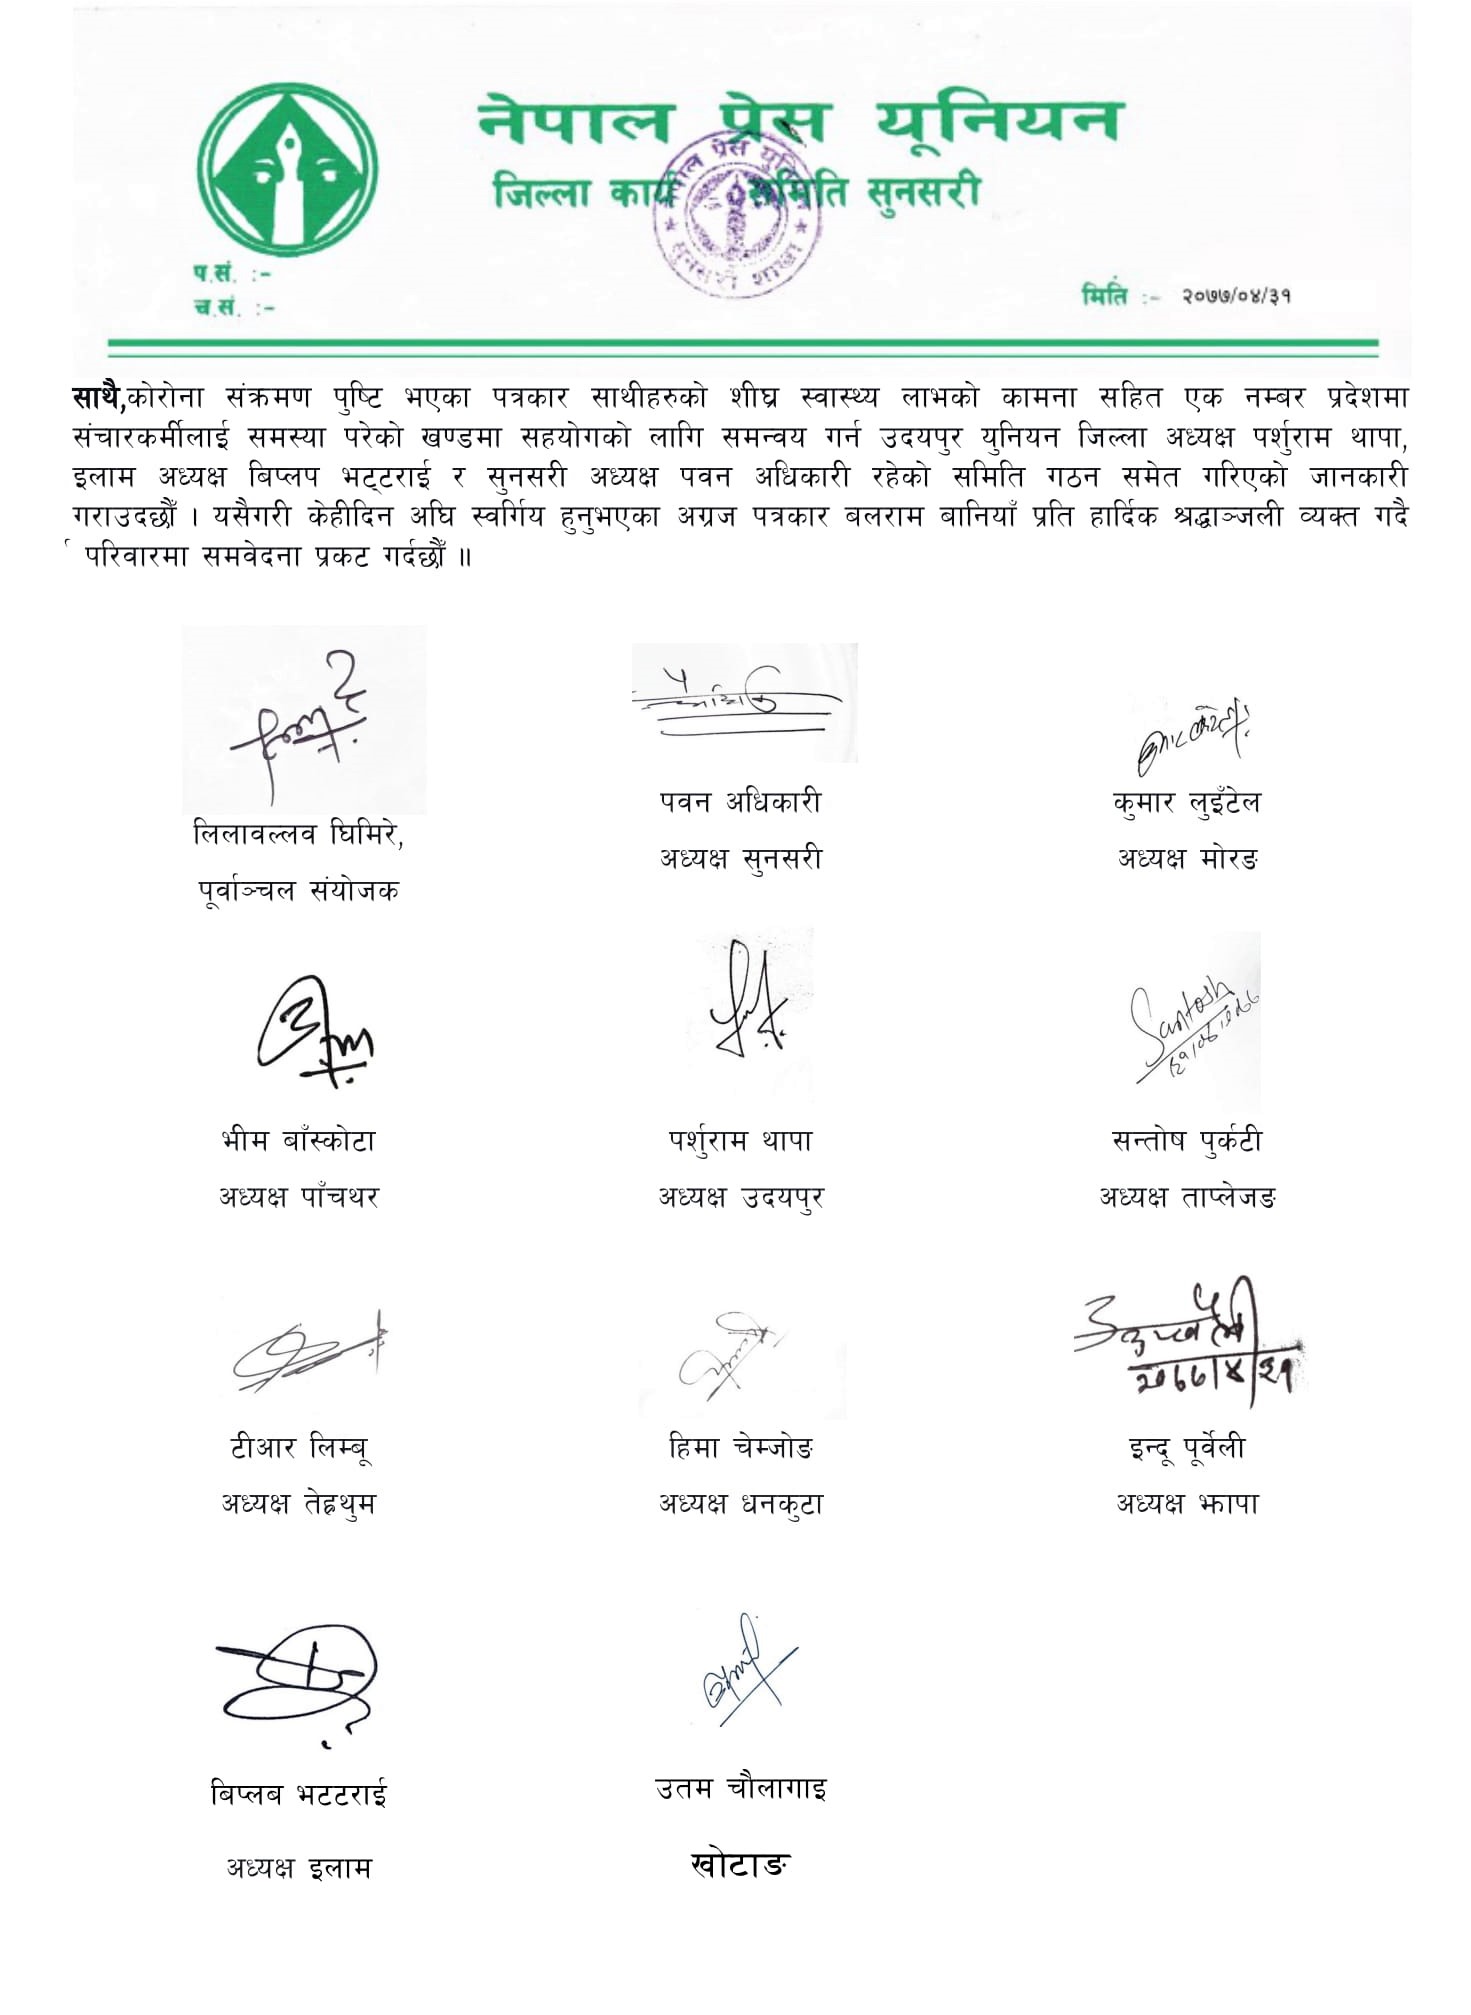 नेपाल प्रेस यूनियन
जिल्ला कार्य समिति सुनसरी
सुनसरी शाखा
प.सं. :-
च.सं. :-
मिति :- २०७७/०४/३१
साथै,कोरोना संक्रमण पुष्टि भएका पत्रकार साथीहरुको शीघ्र स्वास्थ्य लाभको कामना सहित एक नम्बर प्रदेशमा
संचारकर्मीलाई समस्या परेको खण्डमा सहयोगको लागि समन्वय गर्न उदयपुर युनियन जिल्ला अध्यक्ष पर्शुराम थापा,
इलाम अध्यक्ष बिप्लप भट्टराई र सुनसरी अध्यक्ष पवन अधिकारी रहेको समिति गठन समेत गरिएको जानकारी
गराउदछौँ । यसैगरी केहीदिन अघि स्वर्गिय हुनुभएका अग्रज पत्रकार बलराम बानियाँ प्रति हार्दिक श्रद्धाञ्जली व्यक्त गदै
र् परिवारमा समवेदना प्रकट गर्दछौँ ॥
लिलावल्लव घिमिरे,
पूर्वाञ्चल संयोजक
पवन अधिकारी
अध्यक्ष सुनसरी
कुमार लुइँटेल
अध्यक्ष मोरङ
Santosh
भीम बाँस्कोटा
अध्यक्ष पाँचथर
पर्शुराम थापा
अध्यक्ष उदयपुर
सन्तोष पुर्कटी
अध्यक्ष ताप्लेजङ
२०७७/४/३१
टीआर लिम्बू
अध्यक्ष तेह्रथुम
हिमा चेम्जोङ
अध्यक्ष धनकुटा
इन्दू पूर्वेली
अध्यक्ष झापा
बिप्लब भटटराई
अध्यक्ष इलाम
उतम चौलागाइ
खोटाङ